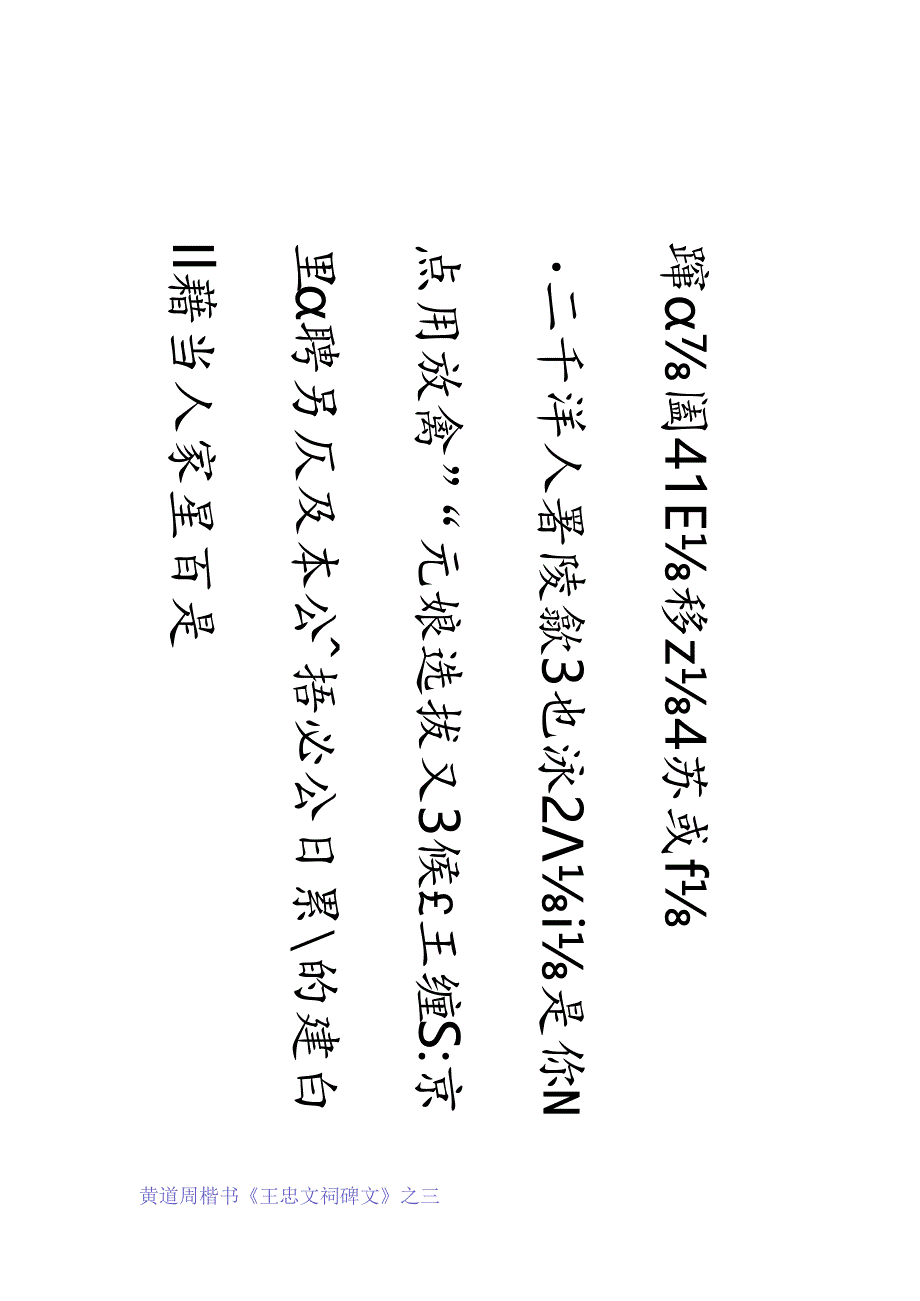 蹿α⅞阖41E⅛移z⅛4苏或f⅛
·二千洋人署陵歙3也泳2Λ⅛i⅛是你N
点用放禽”“元娘选拔又3候£王缠S:京
里α聘另仄及本公^捂必公日累\的建白
II藉当人家星百是
黄道周楷书《王忠文祠碑文》之三